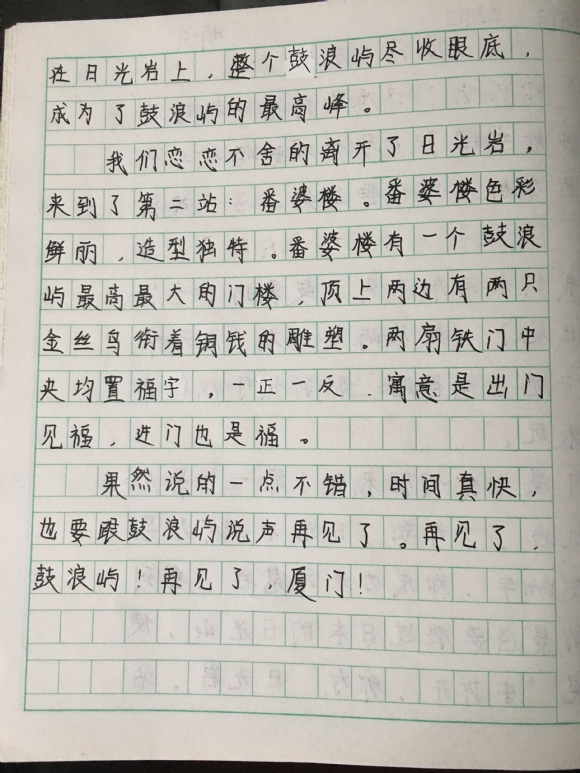 在日光岩上，整个鼓浪屿尽收眼底，
成为了鼓浪屿的最高峰。
我们恋恋不舍的离开了日光岩，
来到了第二站：番婆楼。番婆楼色彩
鲜丽，造型独特。番婆楼有一个鼓浪
屿最高最大的门楼，顶上两边有两只
金丝鸟衔着铜钱的雕塑。两扇铁门中
央均置福字，一正一反，寓意是出门
见福，进门也是福。
果然说的一点不错，时间真快，
也要跟鼓浪屿说声再见了。再见了，
鼓浪屿！再见了，厦门！